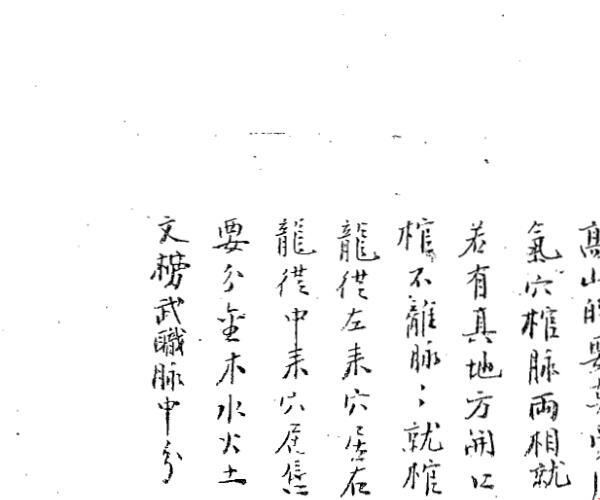 高山的要
氣穴棺脉兩相就
若有真地方開口
棺不離脉:就棺
龍從左来穴居右
龍從中来穴居
要分金木水火土
文榜武職脉中分